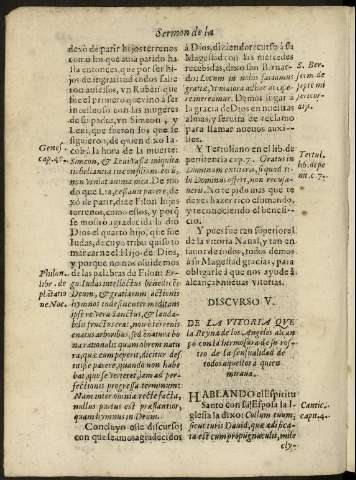 Sermon de la
devò de parir hijos terrenos
como los que auia parido ha
sta entonces, que por ser hi-
jos de ingratitud todos salie
ron auiessos, vn Ruben que
fue el primero que vino à ser
incestuoso con las mugeres
de su padre, vn Simeon, y
Leui, que fueron los que se
siguieron, de quien dixo Ia-
cob à la hora de la muerte:
Simeon, & Leui vasa iniquita
tis bellantia in consilium eorũ,
non veniat anima mea. De mo
do que Lia, cessauit parere, de
xò de parir, dize Filon hijos
terrenos, como ellos, y porq̃
se mostrò agradecida la diò
Dios el quarto hijo, que fue
Iudas, de cuyo tribu quiso to
mar carne el Hijo de Dios,
y porque no nos oluidemos
de las palabras de Filon: Er-
go Iudas intellectus benedicẽs
Deum, & gratiarum actionis
hymnos indesinenter meditans
ipse re vera sanctus, & lauda-
bilis fructus erat, non è terrenis
enatus arboribus, sed è natura bo
na rationali: quam obrem natu
ra, quæ eum peperit, dicitur des
ijsse parere, quando non habe
bat, quo se veteret, iam ad per-
fectionis progressa terminum:
Nam inter omnia recte facta,
nullus partus est præstantior,
quam hymnus in Deum.
Concluyo este discurso
con que seamos agradecidos
Genes.
cap. 49.
Philon.
libr. de
plãtatio
ne Noe.
à Dios, diziendo recurso à su
Magestad con las mercedes
recebidas, dixo san Bernar-
do: Locum in nobis faciamus
gratiæ, vt maiora adhuc accipe-
re mereamur. Demos lugar à
la gracia de Dios en nuestras
almas, y seruira de reclamo
para llamar nueuos auxi-
lios.
Y Tertuliano en el lib. de
penitencia cap. 7. Gratus in
Dominum extiteris, si quod ti-
bi Dominus offert, non recusa-
ueris. No te podemos que te
dexes hazer rico estimando,
y reconociendo el benefi-
cio.
Y pues fue tan superior el
de la vitoria Naual, y tan en
fauor de todos, todos demos
à su Magestad gracias, para
obligarle à que nos ayude à
alcançar nueuas vitorias.
DISCVRSO V.
DE LA VITORIA QVE
la Reyna de los Angeles alcan
çò con la hermosura de su ros-
tro de la sensualidad de
todos aquellos à quien
miraua.
HABLANDO el Espiritu
Santo con su Esposa la I-
glesia la dixo: Collum tuum,
sicut turis Dauid, quæ ædifica-
ta est cum propugnaculis, mille
cly-
S. Ber.
Tertul.
lib. de pe
ni. c. 7.
Cantic.
capit. 4.